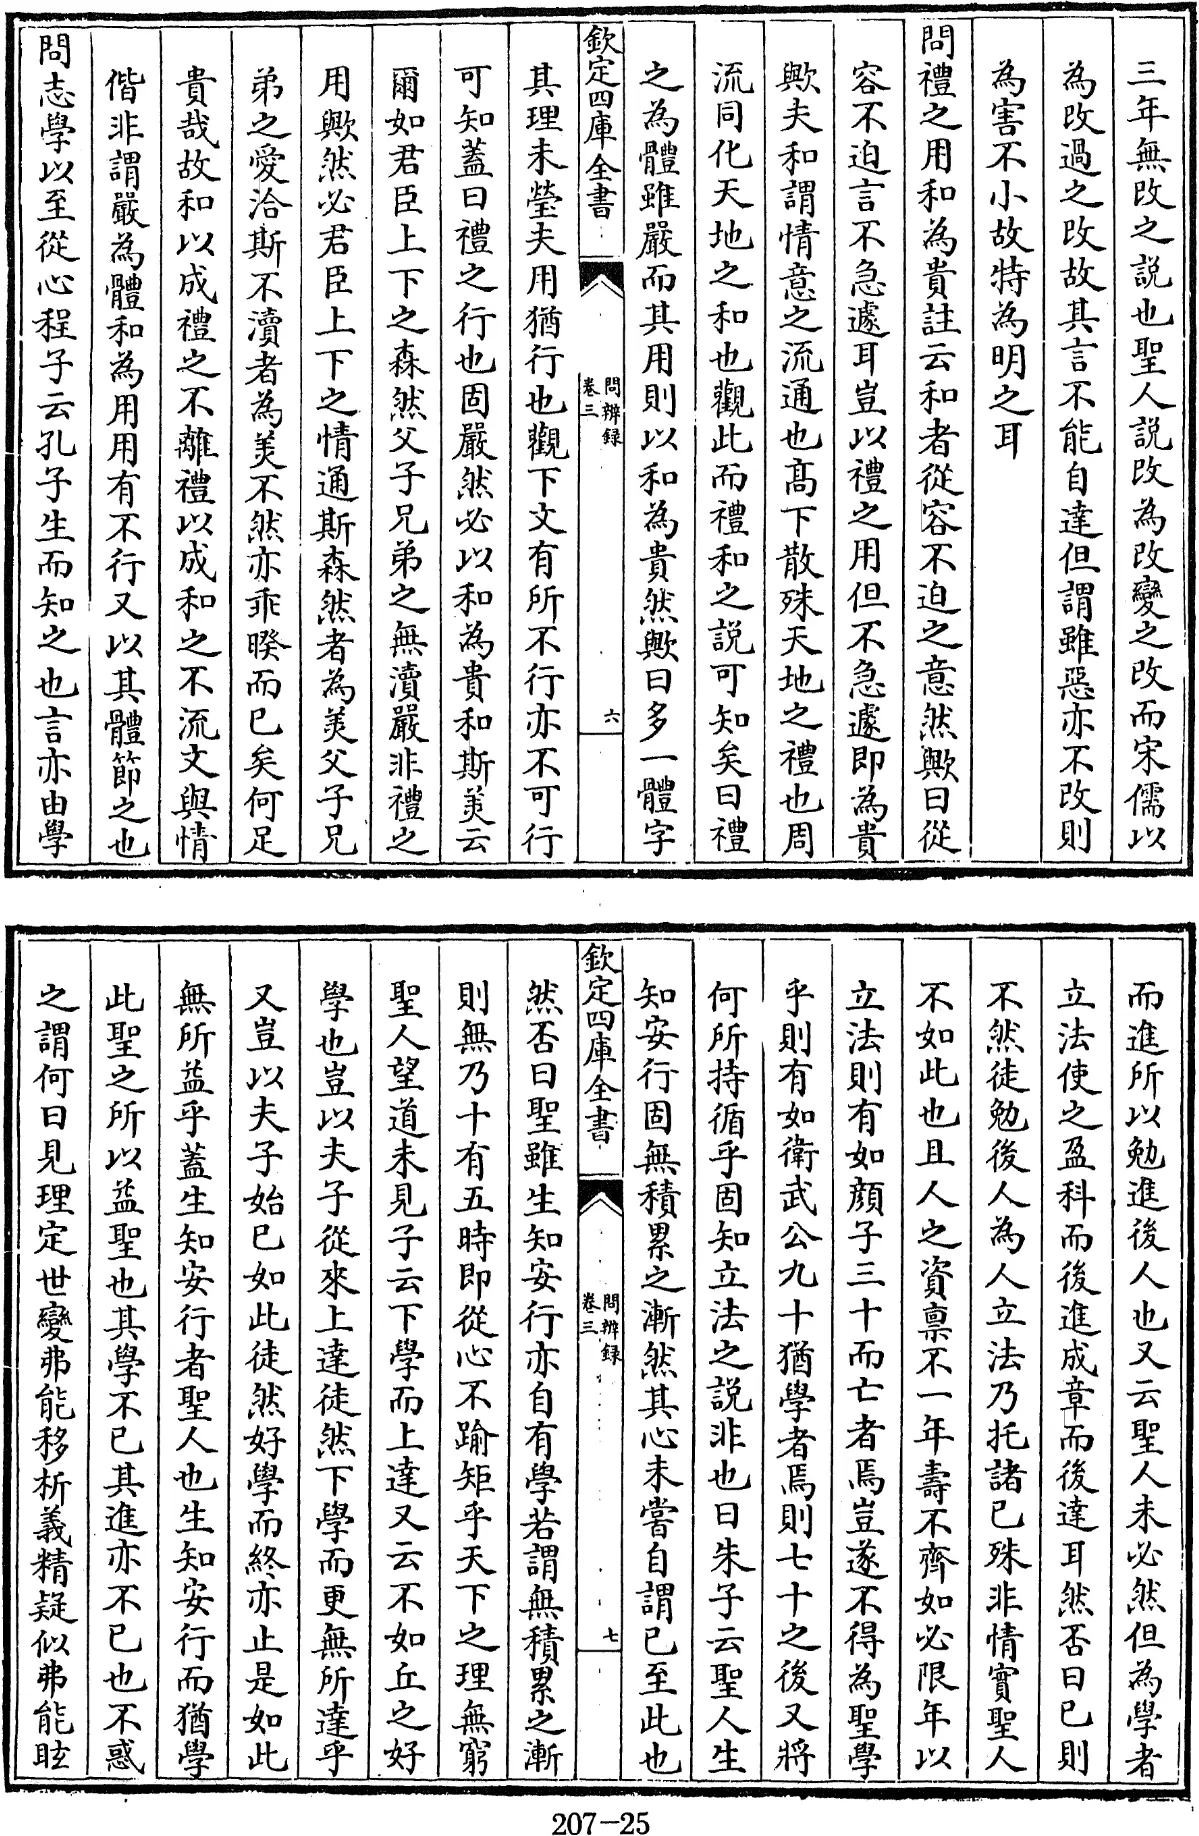 三年無改之説也聖人説改為改變之改而宋儒以
為改過之改故其言不能自達但謂雖惡亦不改則
為害不小故特為明之耳
問禮之用和為貴註云和者從容不迫之意然歟曰從
容不迫言不急遽耳豈以禮之用但不急遽即為貴
歟夫和謂情意之流通也髙下散殊天地之禮也周
流同化天地之和也觀此而禮和之説可知矣曰禮
之為體雖嚴而其用則以和為貴然歟曰多一體字
欽定四庫全書
問辨録
卷三
六
其理未瑩夫用猶行也觀下文有所不行亦不可行
可知蓋曰禮之行也固嚴然必以和為貴和斯美云
爾如君臣上下之森然父子兄弟之無瀆嚴非禮之
用歟然必君臣上下之情通斯森然者為美父子兄
弟之愛洽斯不瀆者為美不然亦乖暌而已矣何足
貴哉故和以成禮之不離禮以成和之不流文與情
偕非謂嚴為體和為用用有不行又以其體節之也
問志學以至從心程子云孔子生而知之也言亦由學
而進所以勉進後人也又云聖人未必然但為學者
立法使之盈科而後進成章而後達耳然否曰已則
不然徒勉後人為人立法乃托諸已殊非情實聖人
不如此也且人之資禀不一年壽不齊如必限年以
立法則有如顔子三十而亡者焉豈遂不得為聖學
乎則有如衛武公九十猶學者焉則七十之後又將
何所持循乎固知立法之説非也曰朱子云聖人生
知安行固無積累之漸然其心未嘗自謂已至此也
欽定四庫全書
問辨録
卷三
七
然否曰聖雖生知安行亦自有學若謂無積累之漸
則無乃十有五時即從心不踰矩乎天下之理無窮
聖人望道未見子云下學而上達又云不如丘之好
學也豈以夫子從來上達徒然下學而更無所達乎
又豈以夫子始已如此徒然好學而終亦止是如此
無所益乎蓋生知安行者聖人也生知安行而猶學
此聖之所以益聖也其學不已其進亦不已也不惑
之謂何曰見理定世變弗能移析義精疑似弗能眩
207-25